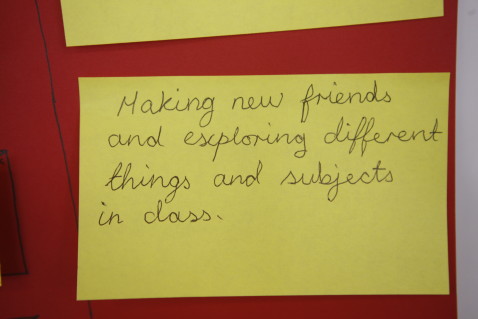 Making new friends
and exploring different
things and subjects
in class.